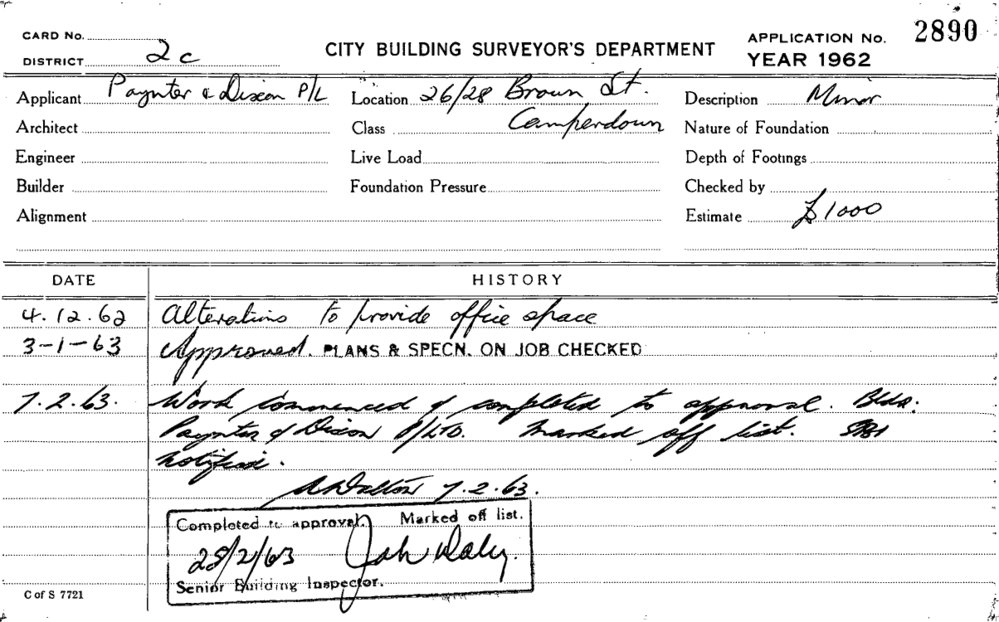 CARD No.
DISTRICT 2c
CITY BUILDING SURVEYOR'S DEPARTMENT
APPLICATION No. 2890
YEAR 1962
Applicant Paynter & Dixon P/L Location 26/28 Brown St. Description Minor
Architect Class Camperdown Nature of Foundation
Engineer Live Load Depth of Footings
Builder Foundation Pressure Checked by
Alignment Estimate £1000
DATE HISTORY
4.12.62 Alterations to provide office space
3-1-63 Approved. PLANS & SPECN. ON JOB CHECKED
7.2.63. Work commenced & completed to approval. Bldr:
Paynter & Dixon P/LTD. Marked off list.
notified.
7.2.63.
Completed to approval. Marked off list.
28/2/63 Daley.
Senior Building Inspector.
C of S 7721